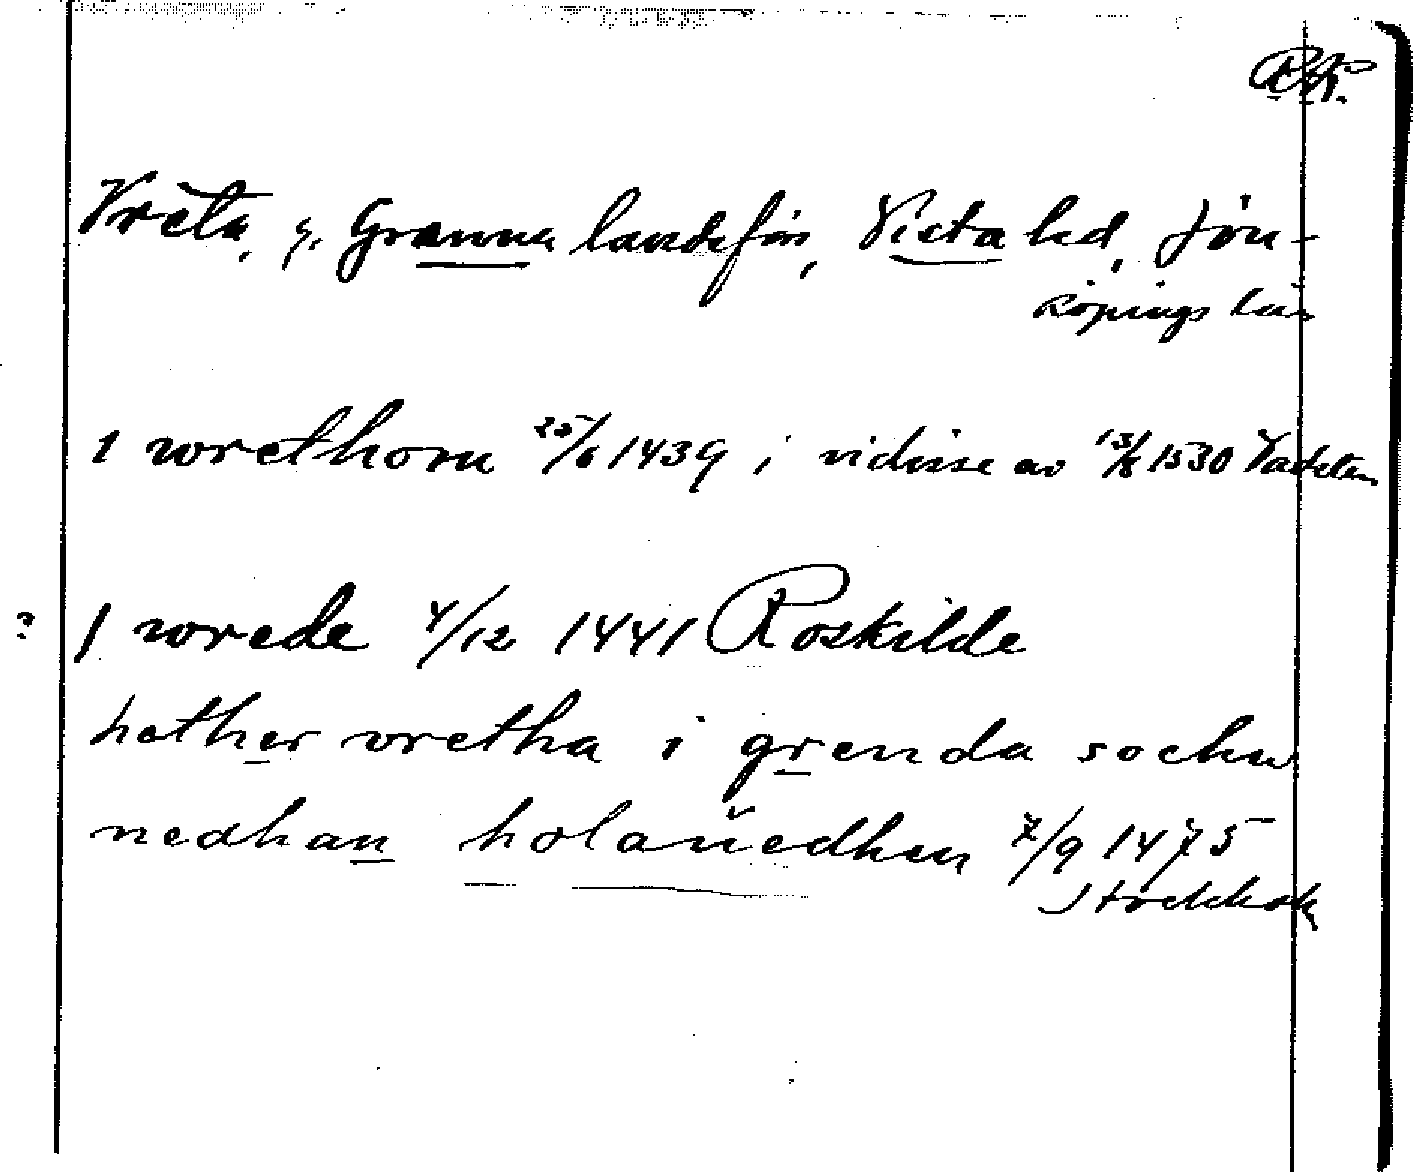 Vreta, g. Gränna landsför, Vista hd, Jön-
köpings län
1 wrethom 25/6 1439 i vidisse av 13/8 1530 Vadsten
? 1 wrede 4/12 1441 Roskilde
hether vretha i grenda sochn
nedhan holaŭedhen 7/9 1475